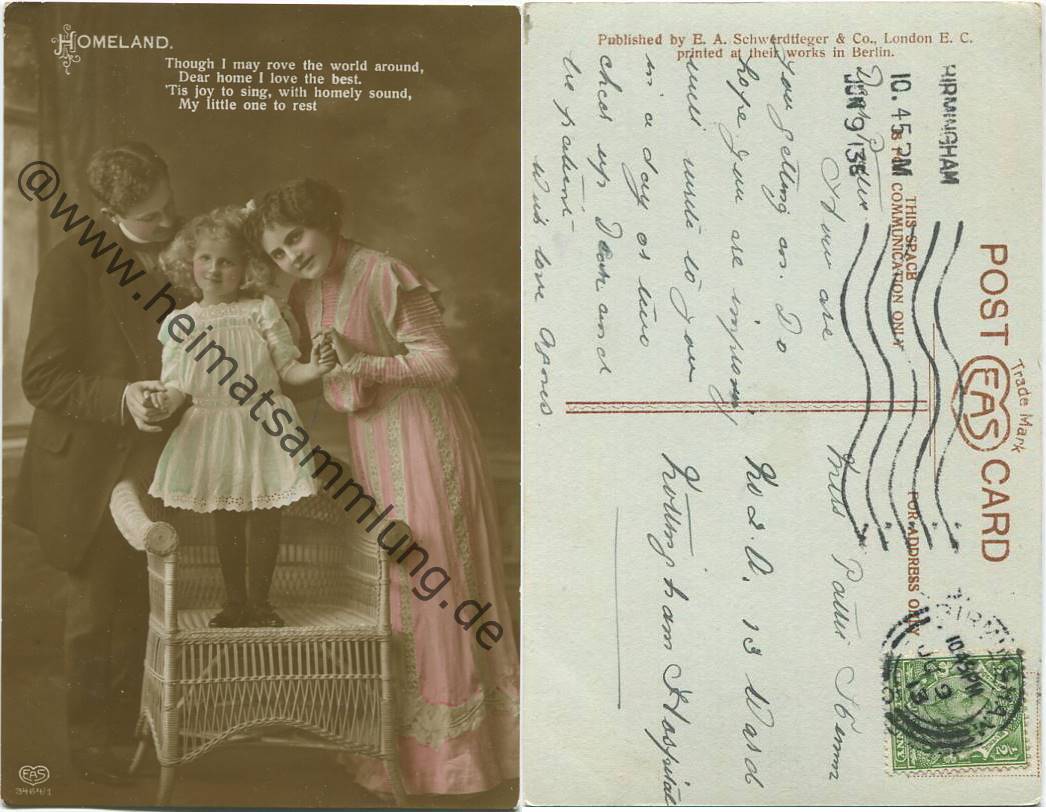 HOMELAND.
Though I may rove the world around,
Dear home I love the best.
'Tis joy to sing, with homely sound,
My little one to rest
@www.heimatsammlung.de
EAS
3464/1
Published by E. A. Schwerdtfeger & Co., London E. C.
printed at their works in Berlin.
POST CARD
Trade Mark
EAS
THIS SPACE
COMMUNICATION ONLY
FOR ADDRESS ONLY
BIRMINGHAM
10.45PM
JUN 9 13
BIRMINGHAM
10.45PM
9
13
How are
you getting on. Do
hope you are improving
will write to you
in a day or two
cheer up Dear and
be patient
With love Agnes.
Miss
No 2. A. 13 Ward
Nottingham Hospital